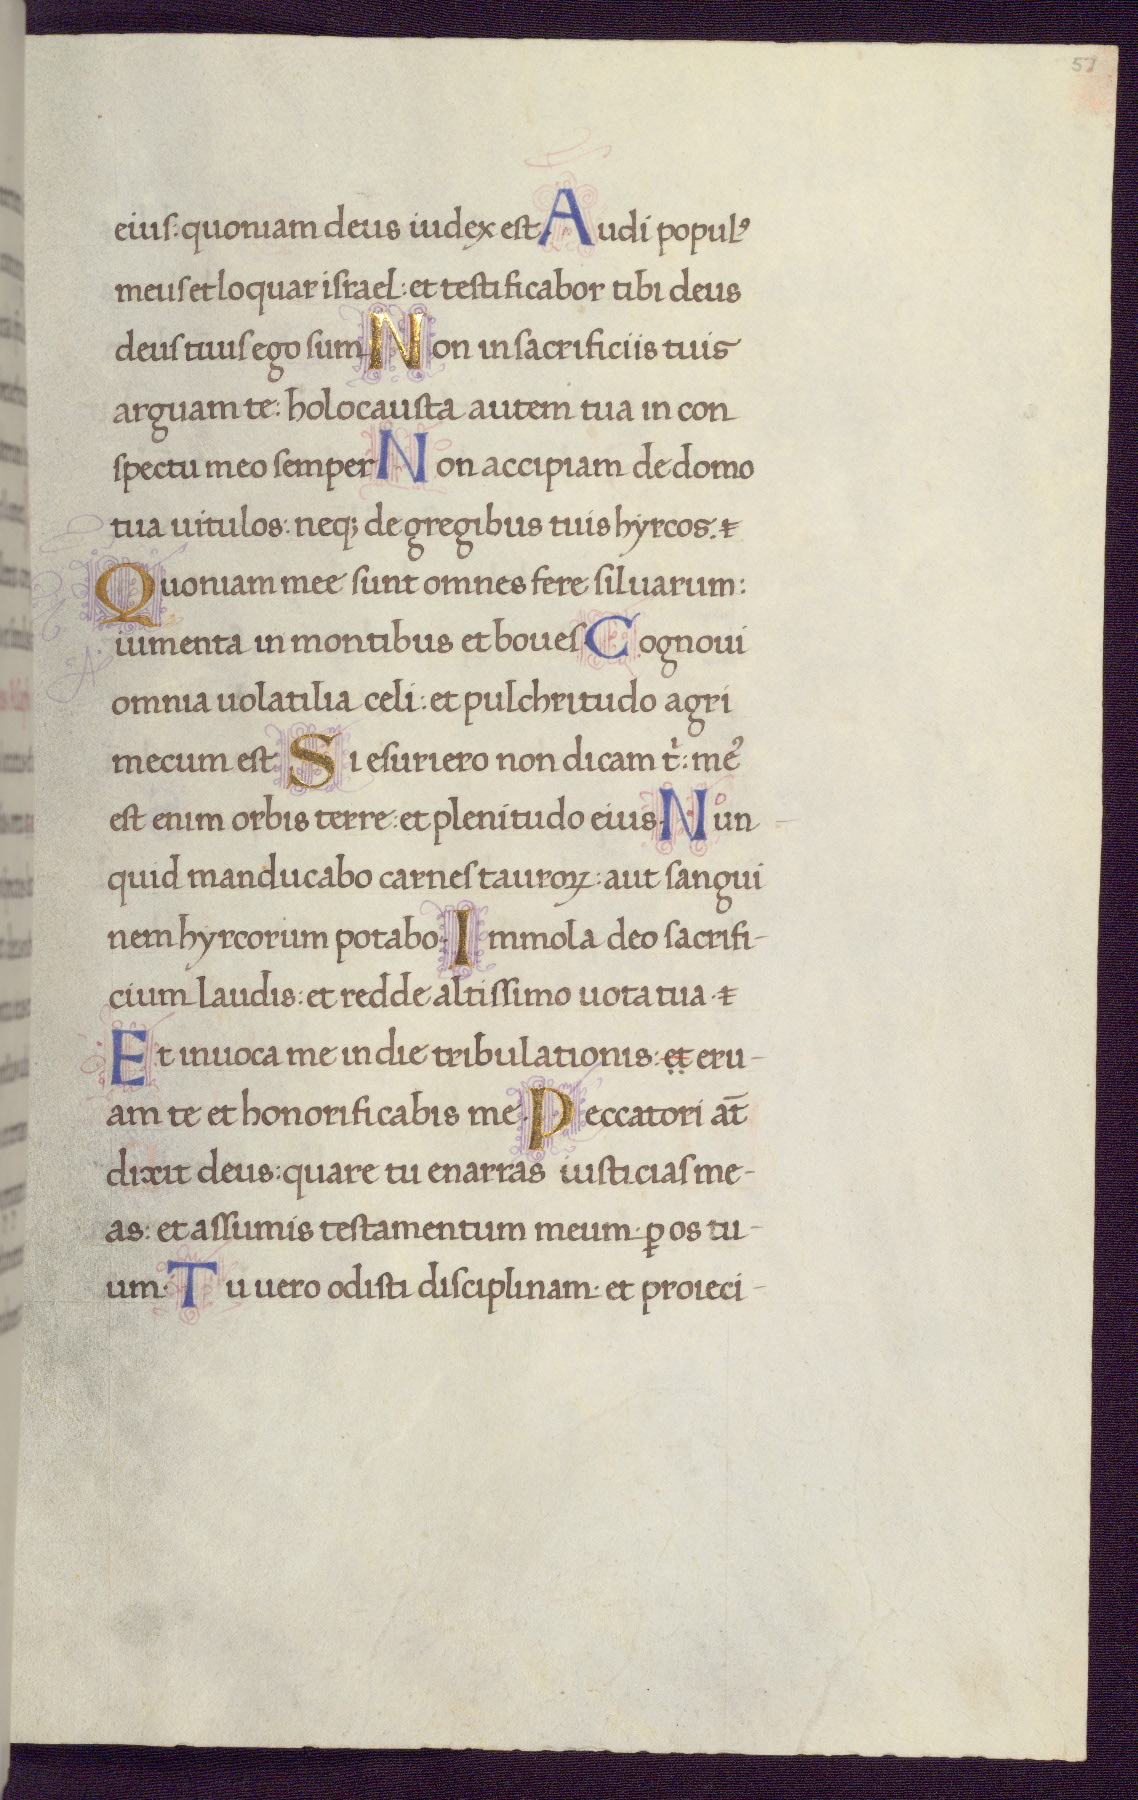 57
eius: quoniam deus iudex est. Audi populꝰ
meus et loquar israel: et testificabor tibi deus
deus tuus ego sum. Non in sacrificiis tuis
arguam te: holocausta autem tua in con
spectu meo semper. Non accipiam de domo
tua uitulos: neqꝫ de gregibus tuis hyrcos. &
Quoniam mee sunt omnes fere siluarum:
iumenta in montibus et boues. Cognoui
omnia uolatilia celi: et pulchritudo agri
mecum est. Si esuriero non dicam t̾: meꝰ
est enim orbis terre: et plenitudo eius. Nun
quid manducabo carnes tauroꝝ: aut sangui
nem hyrcorum potabo. Immola deo sacrifi-
cium laudis: et redde altissimo uota tua. &
Et inuoca me in die tribulationis: et eru-
am te et honorificabis me. Peccatori at̄
dixit deus: quare tu enarras iusticias me-
as: et assumis testamentum meum. ꝑ os tu-
um. Tu uero odisti disciplinam: et proieci-